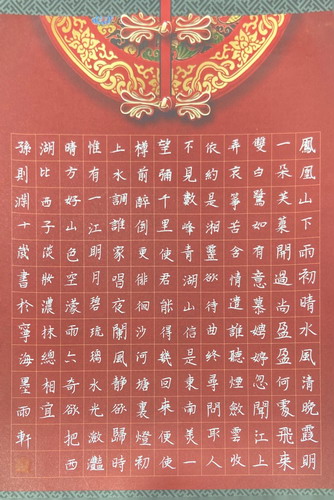 鳳凰山下雨初晴水風清晚霞明
一朵芙蕖開過尚盈盈何處飛來
雙白鷺如有意慕娉婷忽聞江上
弄哀箏苦含情遣誰聽煙斂雲收
依約是湘靈欲待曲終尋問取人
不見數峰青湖山信是東南美一
望彌千里使君能得幾回來便使
樽前醉倒更徘徊沙河塘裏燈初
上水調誰家唱夜闌風靜欲歸時
惟有一江明月碧琉璃水光瀲灩
晴方好山色空濛雨亦奇欲把西
湖比西子淡妝濃抹總相宜
孫則淵十歲書於寧海墨雨軒